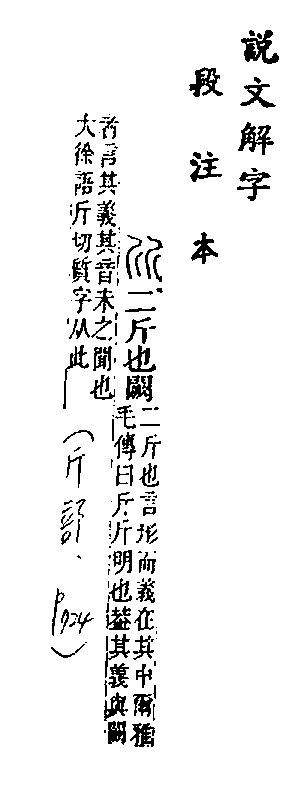 說文解字
段注本
二斤也闕
二斤也言形而義在其中爾雅
毛傳曰斤斤明也葢其義與闕
者言其義其音未之聞也
大徐語斤切質字从此
(斤部、p924)